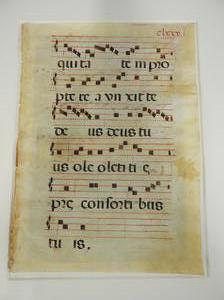 clxxx
quita te m pro
pte re a vn xit te
de us deus tu
us ole oleti ti e
pre consorti bus
tu is.